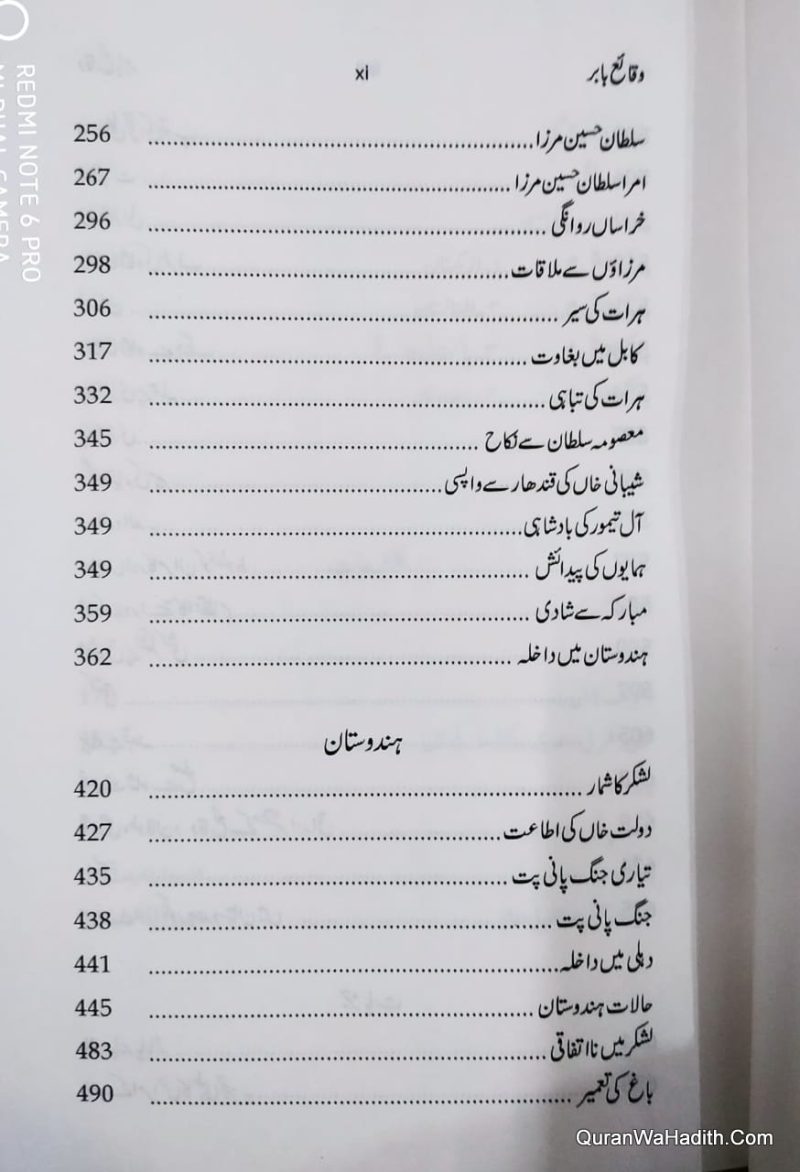 وقائع بابر xi
سلطان حسین مرزا 256
امرا سلطان حسین مرزا 267
خراساں روانگی 296
مرزاؤں سے ملاقات 298
ہرات کی سیر 306
کابل میں بغاوت 317
ہرات کی تباہی 332
معصومہ سلطان سے نکاح 345
شیبانی خاں کی قندھار سے واپسی 349
آل تیمور کی بادشاہی 349
ہمایوں کی پیدائش 349
مبارکہ سے شادی 359
ہندوستان میں داخلہ 362
ہندوستان
لشکر کا شمار 420
دولت خاں کی اطاعت 427
تیاری جنگ پانی پت 435
جنگ پانی پت 438
دہلی میں داخلہ 441
حالات ہندوستان 445
لشکر میں نااتفاقی 483
باغ کی تعمیر 490
REDMI NOTE 6 PRO
MI DUAL CAMERA
QuranWaHadith.Com